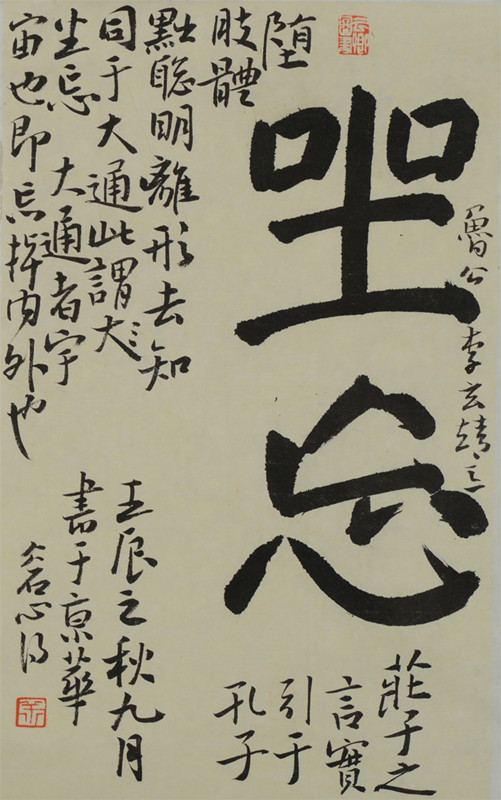 坐忘
魯公 李玄靖
莊子之
言實
引于
孔子
墮
肢體
黜聰明離形去知
同于大通此謂大
坐忘 大通者宇
宙也即忘掉内外也
壬辰之秋九月
書于京華